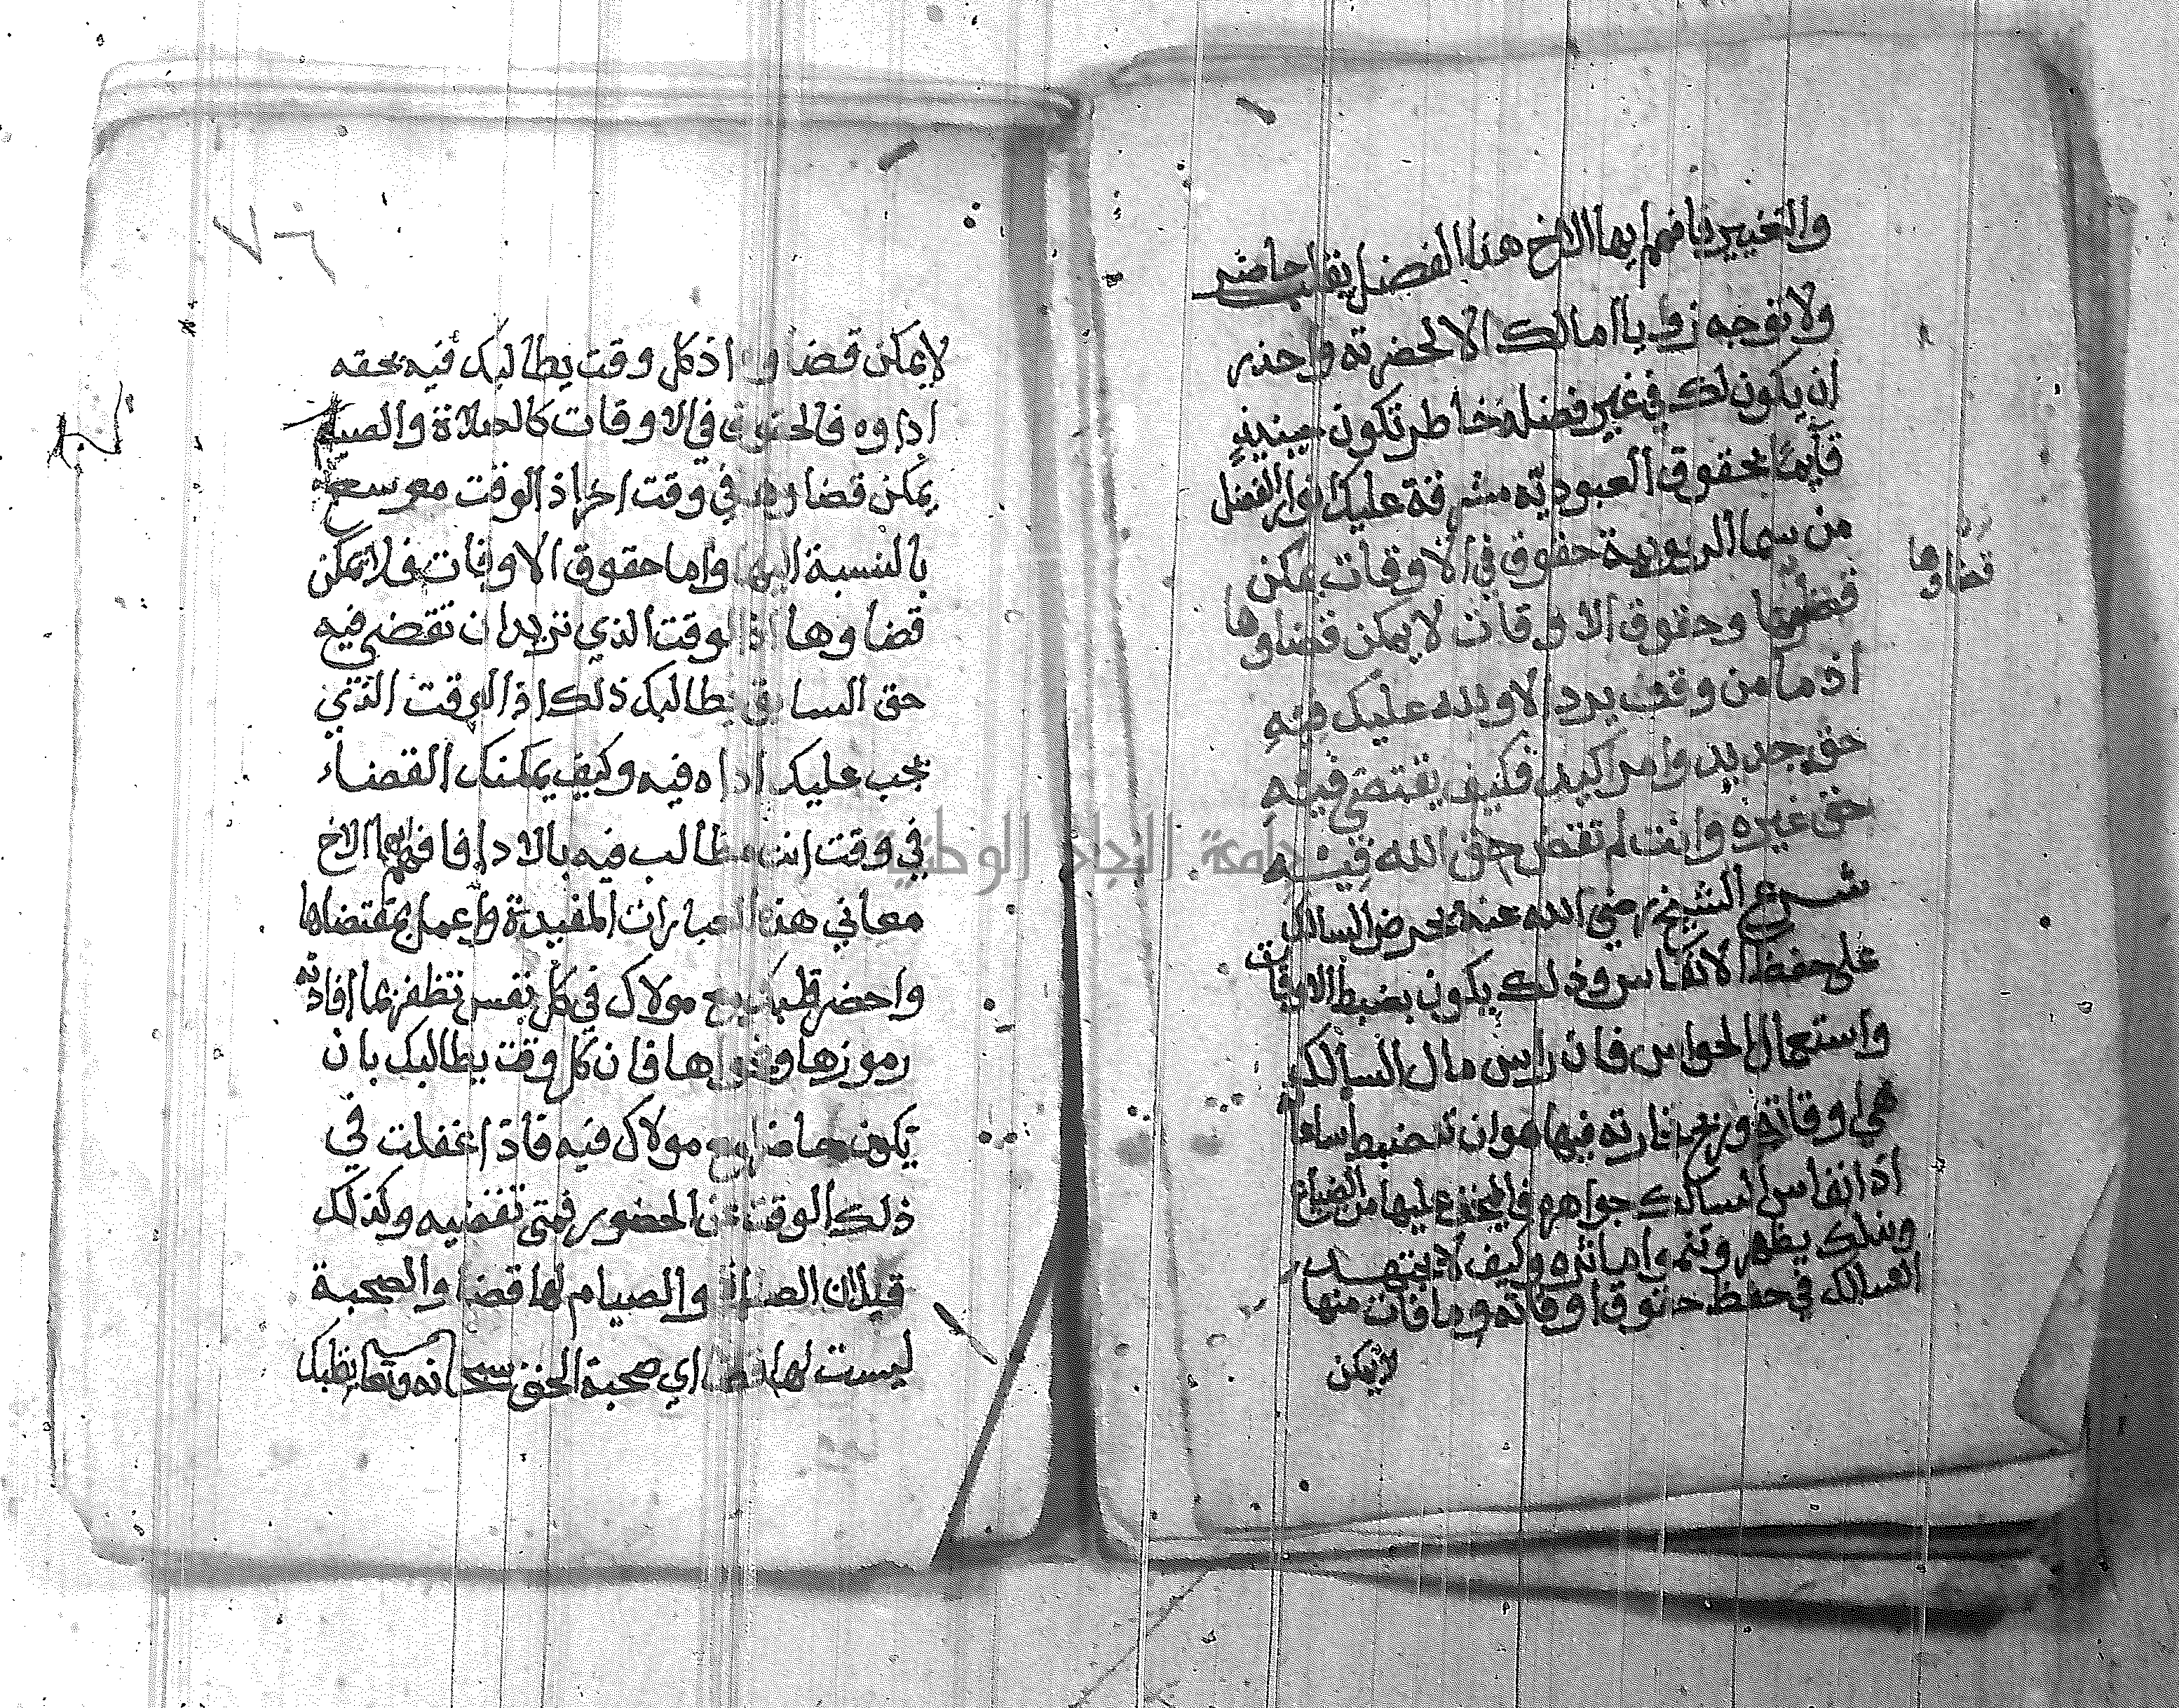 والتخيير فافهم ايها الاخ هذا الفضل بقلب حاضر
ولا توجه زوايا امالك الا لحضرته واحذر
ان يكون لك في غير فضله خاطر تكون حينيذ
قايما بحقوق العبوديه مشرقة عليك انوار الفضل
من سما الربوبية حقوق في الاوقات يمكن
قضاوها
وحقوق الاوقات لا يمكن قضاوها
اذ ما من وقت يرد الا ولله عليك فيه
حق جديد وامر اكيد فكيف يقتضي فيه
حق غيره وانت لم تقض حق الله فيه
شرع الشيخ رضي الله عنه يحرض السالك
على حفظ الانفاس وذلك يكون بضبط الاوقات
واستعمال الحواس فان راس مال السالك
هي اوقاته وربح تجارته فيها هو ان تنضبط ساعاته
اذ انفاس السالك جواهر عليها من الضياع
وبذلك يظهر وكيف لا يجتهد
السالك في حفظ حقوق اوقاته وما فات منها
لا يمكن
لا يمكن قضاوه اذ كل وقت يطالبك فيه بحقه
اداوه فالحقوق في الاوقات كالصلاة والصيام
يمكن قضاوها في وقت اخر اذ الوقت متوسع
بالنسبة اليها واما حقوق الاوقات فلا يمكن
قضاوها اذ الوقت الذي تريد ان تقضي فيه
حق السابق يطالبك ذلك اذ الوقت الذي
يجب عليك اداه فيه وكيف يمكنك القضاء
في وقت انت مطالب فيه بالادا فافهم ايها الاخ
معاني هذه العبارات المفيدة واعمل بمقتضاها
واحضر قلبك مع مولاك في كل نفس تظفر بما افادته
رموزها وفحواها فان كل وقت يطالبك بان
تكون حاضرا مع مولاك فيه فاذا غفلت في
ذلك الوقت عن الحضور فمتى تقضيه وكذلك
قيل ان الصلاة والصيام لها قضا والصحبة
ليست لها قضا اي صحبة الحق سبحانه وتعالى
جامعة النجاح الوطنية